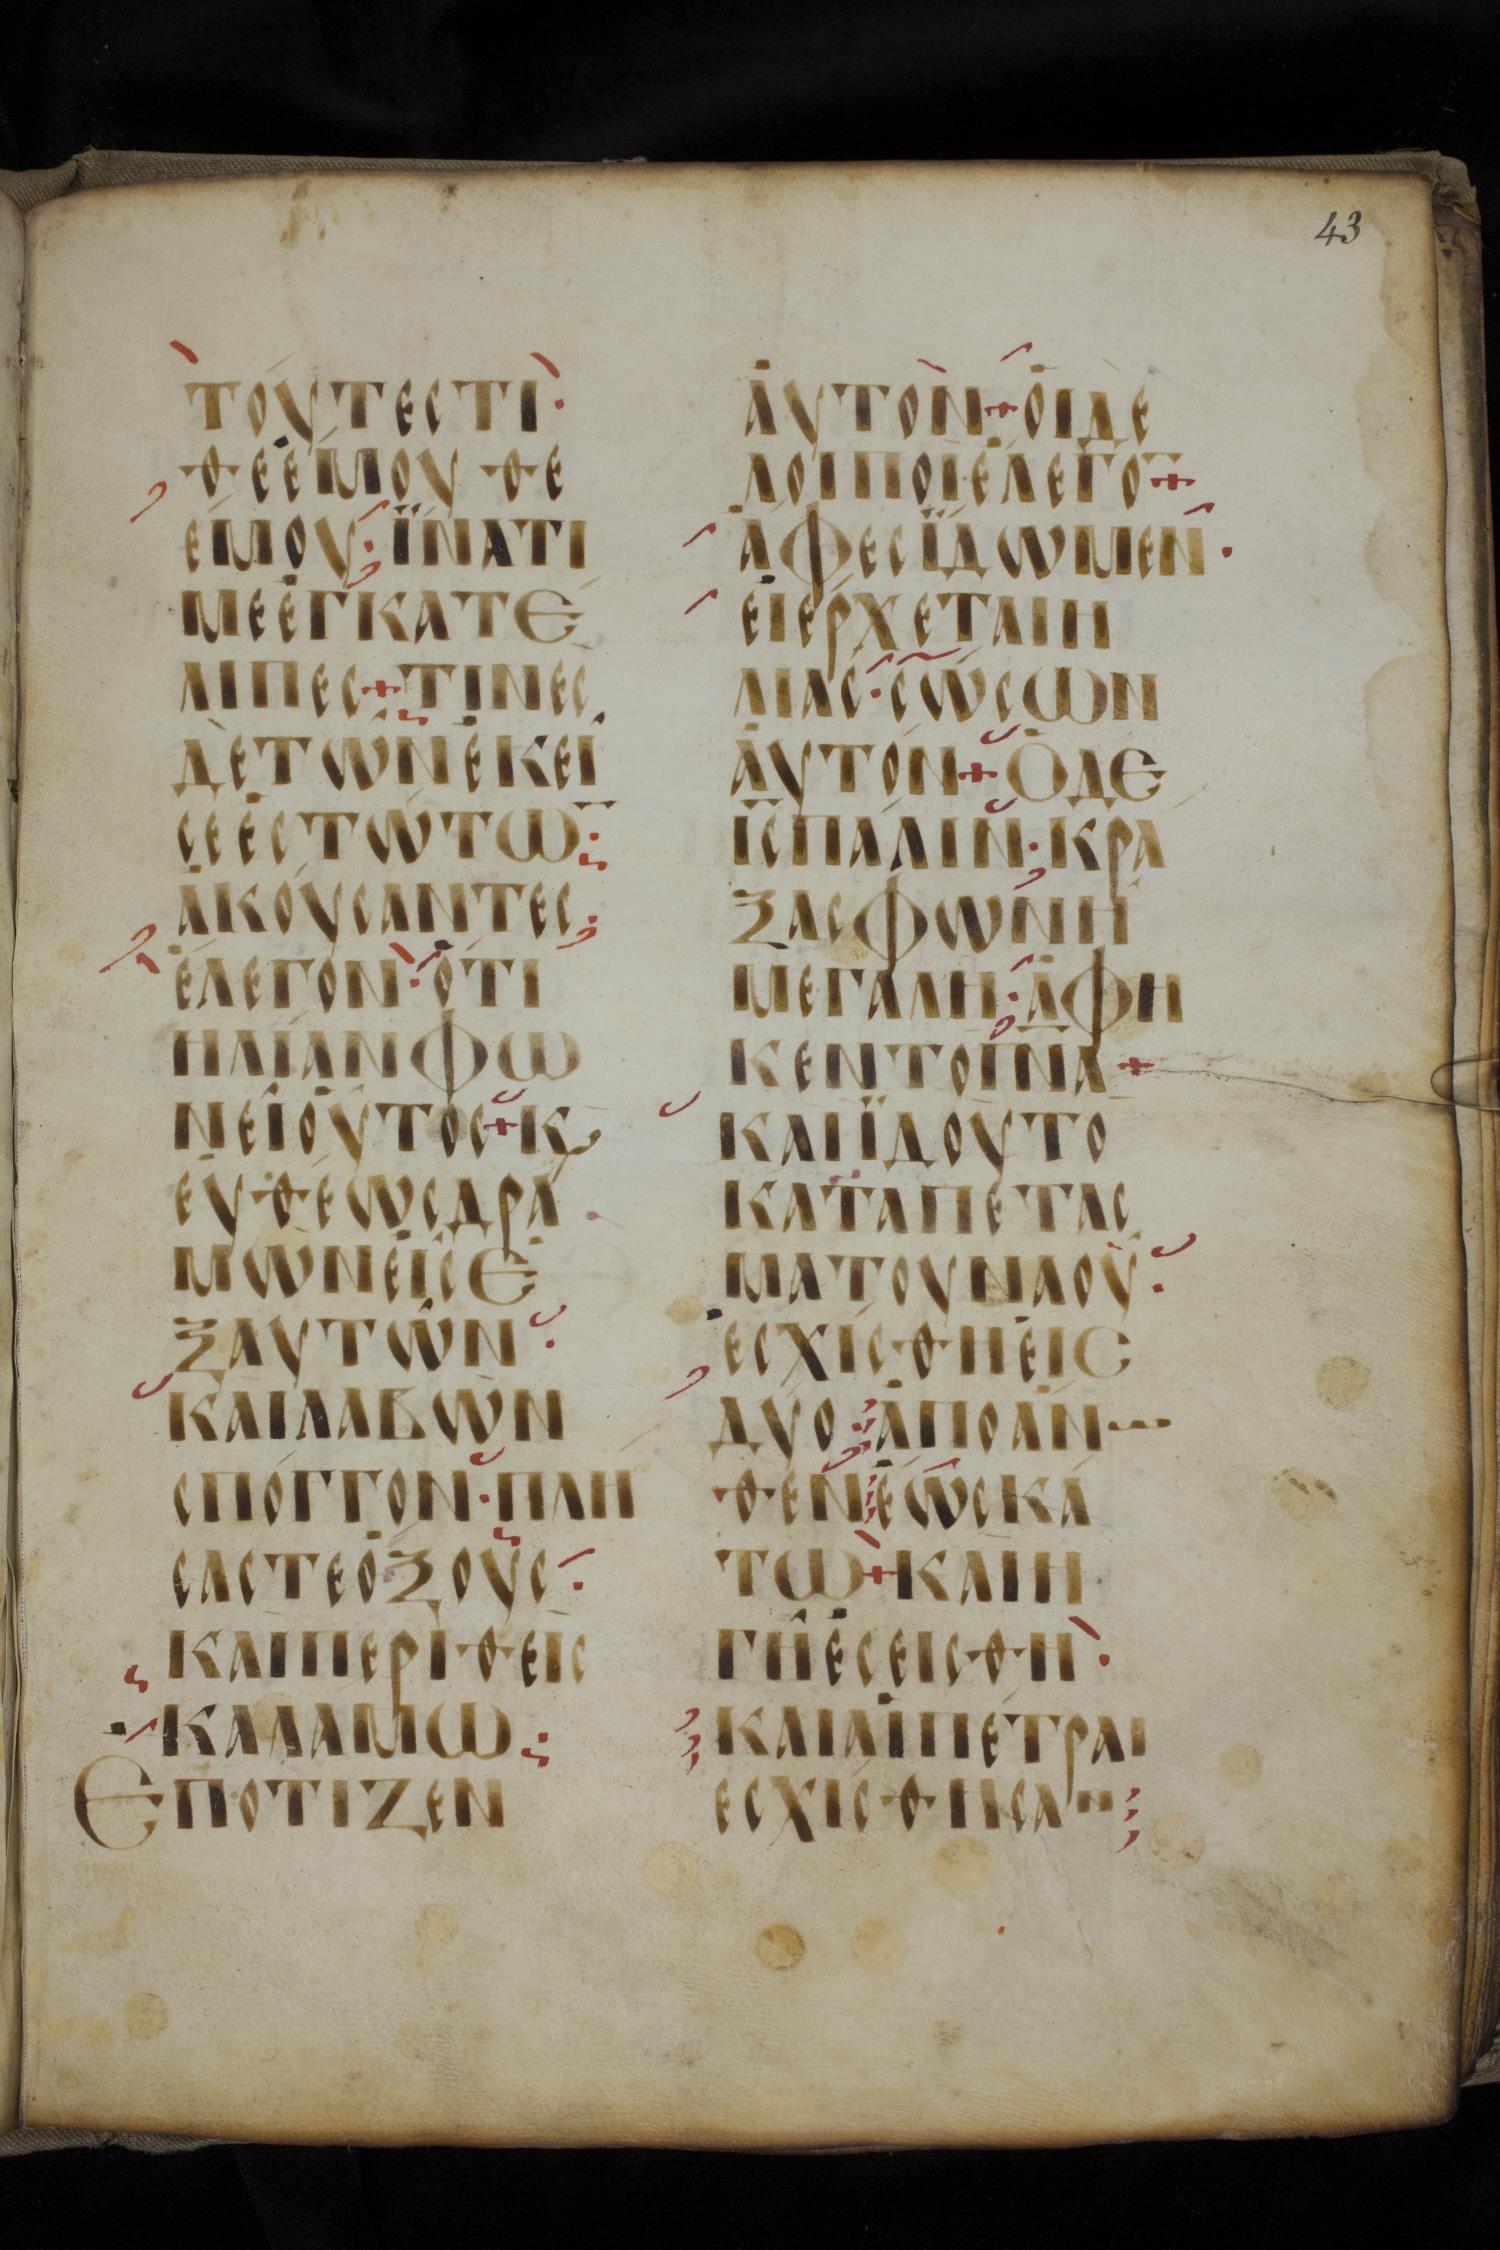 43
ΤΟΥΤΕСΤΙ·
ΘΕΕΜΟΥ ΘΕ
ΕΜΟΥ· ΪΝΑΤΙ
ΜΕΕΓΚΑΤΕ
ΛΙΠΕС+ΤΙΝΕС
ΔΕΤΩΝΕΚΕΙ
СΕΕСΤΩΤΩ̅·
ΑΚΟΥСΑΝΤΕС·
ΕΛΕΓΟΝ·ΟΤΙ
ΗΛΙΑΝΦΩ
ΝΕΙΟΥΤΟС+Κ,
ΕΥΘΕΩСΔΡΑ
ΜΩΝΕΙСΕ
ΞΑΥΤΩΝ·
ΚΑΙΛΑΒΩΝ
СΠΟΓΓΟΝ·ΠΛΗ
СΑСΤΕΟΞΟΥС·
ΚΑΙΠΕΡΙΘΕΙС
ΚΑΛΑΜΩ·
ΕΠΟΤΙΖΕΝ
ΑΥΤΟΝ+ΟΙΔΕ
ΛΟΙΠΟΙΕΛΕΓΟ̅+
ΑΦΕСΪΔΩΜΕΝ·
ΕΙΕΡΧΕΤΑΙΗ
ΛΙΑС·СΩСΩΝ
ΑΥΤΟΝ+ΟΔΕ
Ι̅С̅ΠΑΛΙΝ·ΚΡΑ
ΞΑСΦΩΝΗ
ΜΕΓΑΛΗ·ΑΦΗ
ΚΕΝΤΟΠ̅Ν̅Α̅+
ΚΑΙΪΔΟΥΤΟ
ΚΑΤΑΠΕΤΑС
ΜΑΤΟΥΝΑΟΥ·
ΕСΧΙСΘΗΕΙС
ΔΥΟ·ΑΠΟΑΝ
ΘΕΝΕΩСΚΑ
ΤΩ+ΚΑΙΗ
ΓΗΕСΕΙСΘΗ·
ΚΑΙΑΙΠΕΤΡΑΙ
ΕСΧΙСΘΗСΑΝ